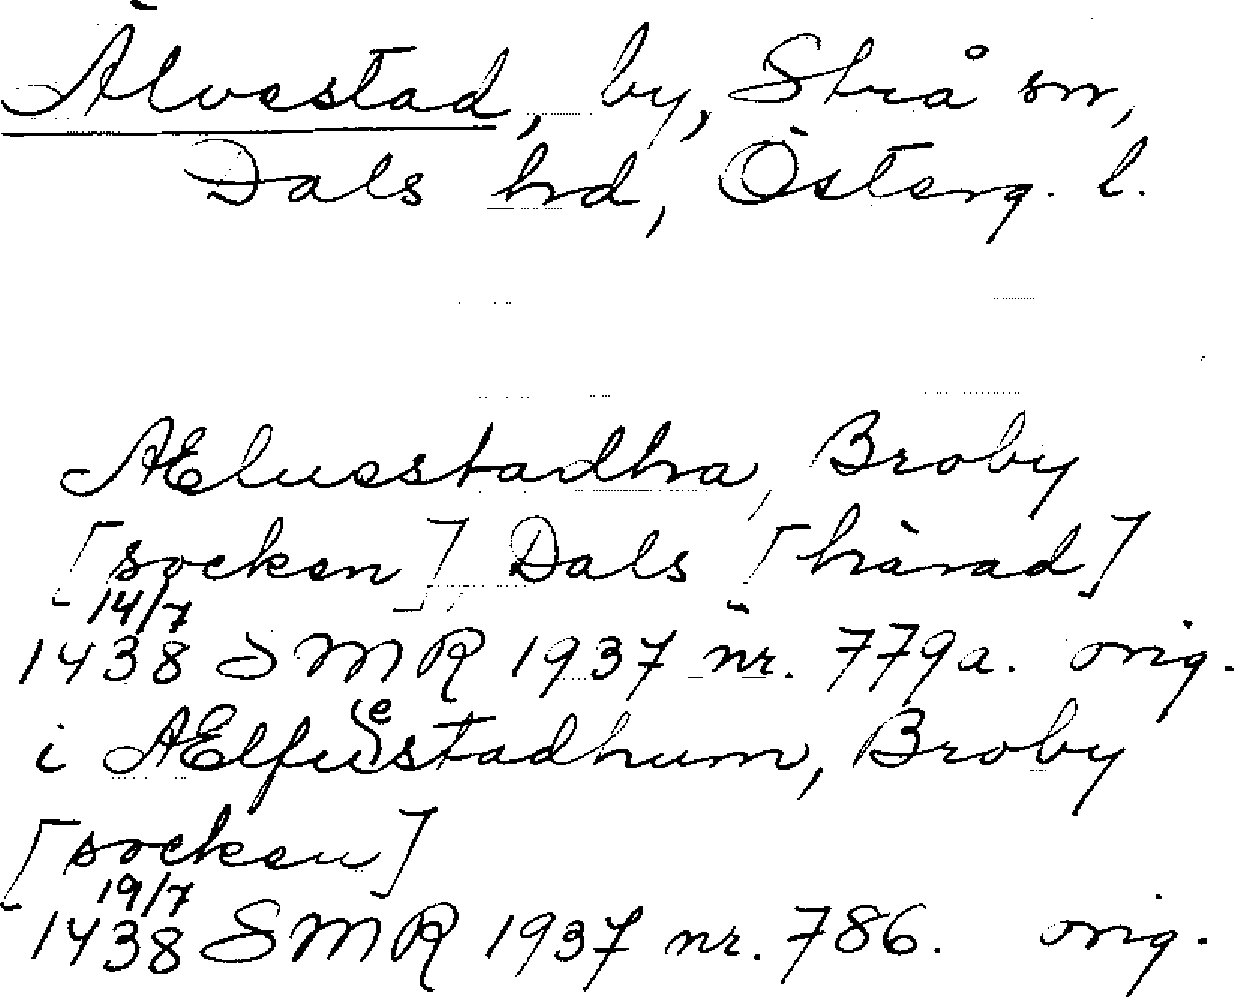 Älvestad, by, Strå sn,
Dals hd, Österg. l.
AEluestadha, Broby
[socken] Dals [härad]
14/7
1438 SMR 1937 nr. 779a. orig.
i AElfuestadhum, Broby
[socken]
19/7
1438 SMR 1937 nr. 786. orig.